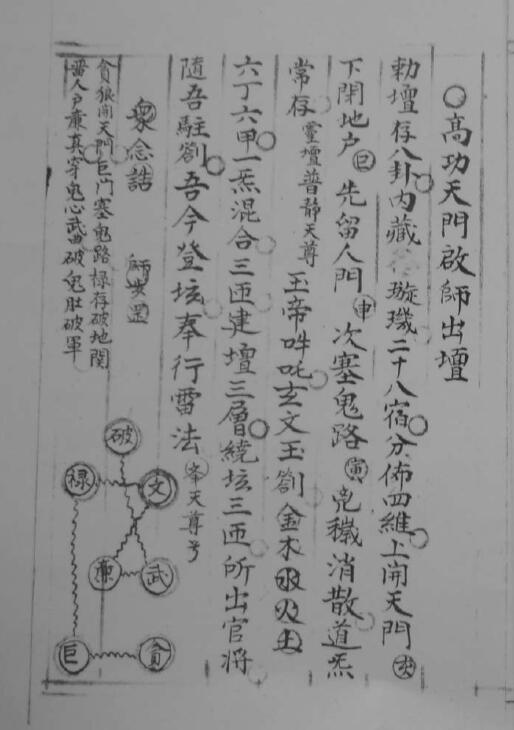 ○高功天門啟師出壇
勅壇存八卦内藏璇璣二十八宿分佈四維上開天門
下閉地户 巳 先留人門 申 次塞鬼路 寅 兇穢消散道炁
常存 靈壇普静天尊 玉帝吽吒玄文玉劄金木水火土
六丁六甲一炁混合三匝建壇三層繞坛三匝所出官将
隨吾駐劄吾今登坛奉行雷法 天尊号
衆念誥 師步罡
貪狼開天門巨门塞鬼路禄存破地関
人户亷真穿鬼心武曲破鬼肚破軍
破
禄 文
亷 武
巨 貪